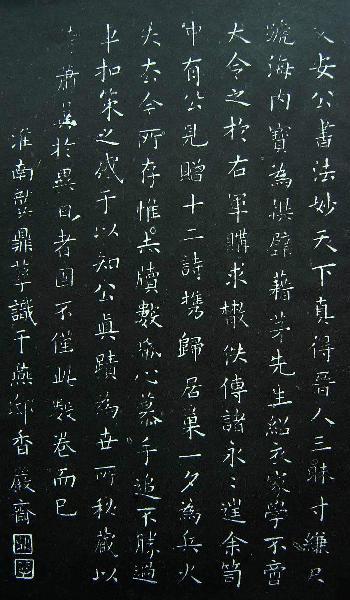 文安公書法妙天下真得晉人三昧寸縑尺
海內寶為拱璧藉茅先生紹衣家學不啻
大令之於右軍購求散佚傳諸永〻邇余笥
中有公見贈十二詩携歸居巢一夕為兵火
失去今所存惟牘數紙心慕手追不勝過
車扣策之感于以知公真蹟為世所秘藏以
蕭翼於異日者固不僅此數卷而已
淮南龔鼎孳識于燕邸香嚴齋